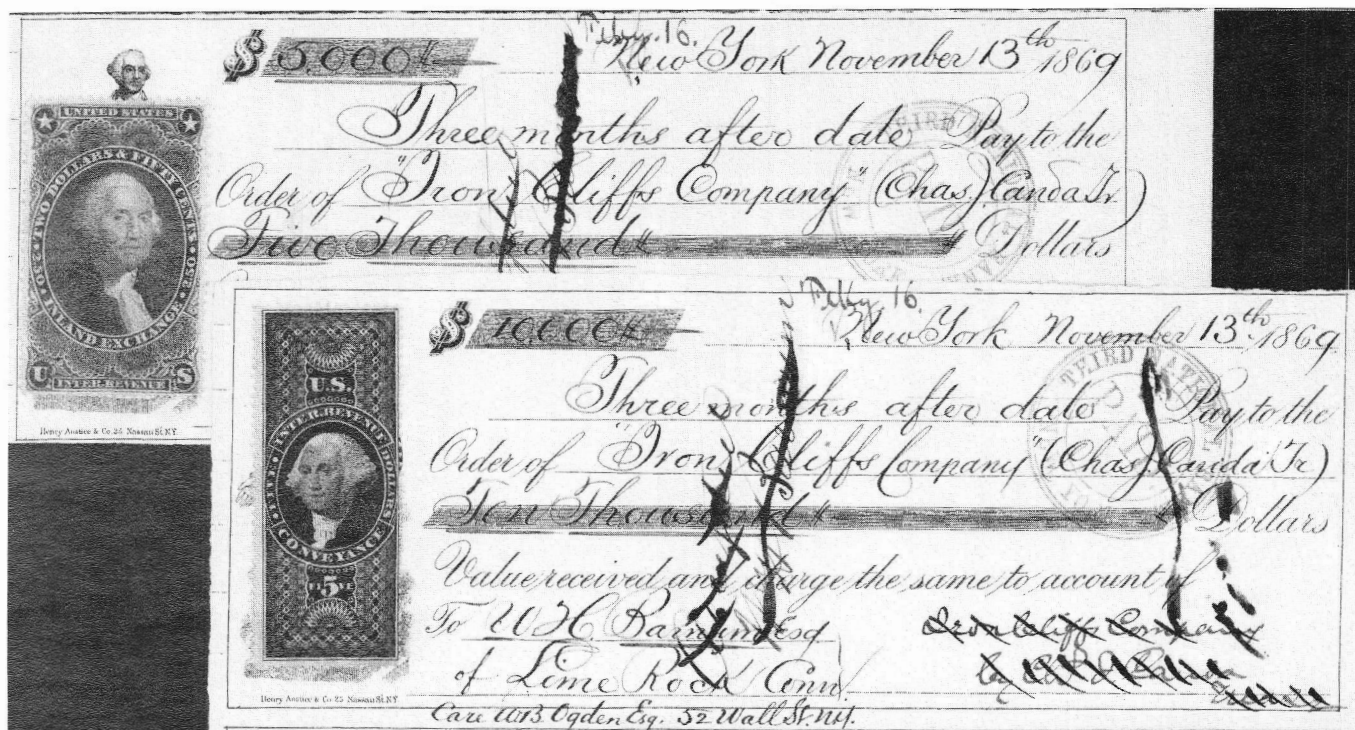 Feby. 16.
$ 5,000
New York November 13th 1869
Three months after date Pay to the
Order of "Iron Cliffs Company" (Chas. J. Canda Tr.)
Five Thousand Dollars
UNITED STATES
TWO DOLLARS & FIFTY CENTS
INLAND EXCHANGE
250
250
U S
INTER. REVENUE
Henry Anstice & Co. 25 Nassau St. N.Y.
THIRD
Feby. 16.
$ 10,000
New York November 13th 1869
Three months after date Pay to the
Order of "Iron Cliffs Company" (Chas. J. Canda Tr)
Ten Thousand Dollars
Value received and charge the same to account of
To W H Barnum Esq
of Lime Rock Conn.
Care W B. Ogden Esq. 52 Wall St. N.Y.
Iron Cliffs Company
by
U.S.
INTER. REVENUE
FIVE DOLLARS
CONVEYANCE
FI 5 VE
Henry Anstice & Co. 25 Nassau St. N.Y.
THIRD NATIONAL